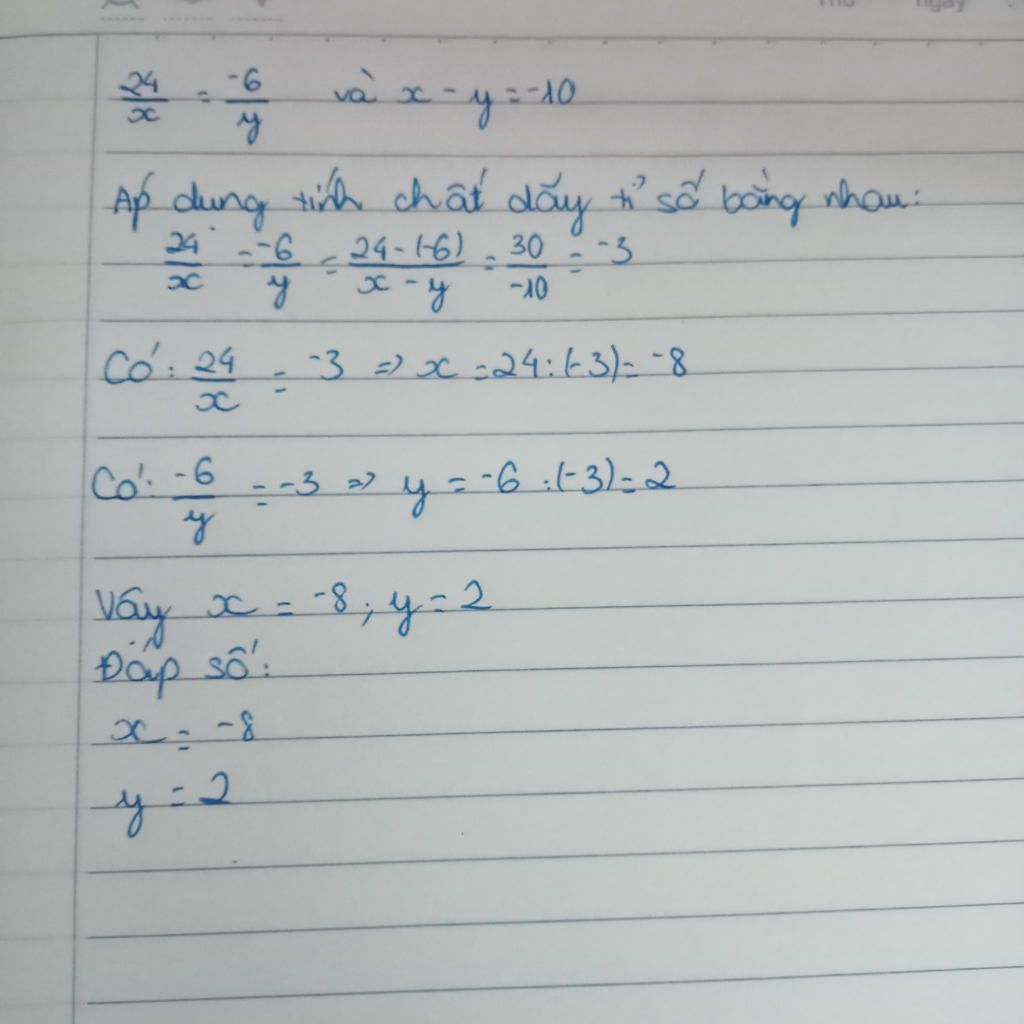 Thứ ngày
24/x = -6/y và x - y = -10
Áp dung tính chất dãy tỉ số bằng nhau:
24/x = -6/y = 24-(-6)/x - y = 30/-10 = -3
Có: 24/x = -3 => x = 24:(-3) = -8
Có: -6/y = -3 => y = -6 :(-3) = 2
Vây x = -8; y = 2
Đáp số:
x = -8
y = 2